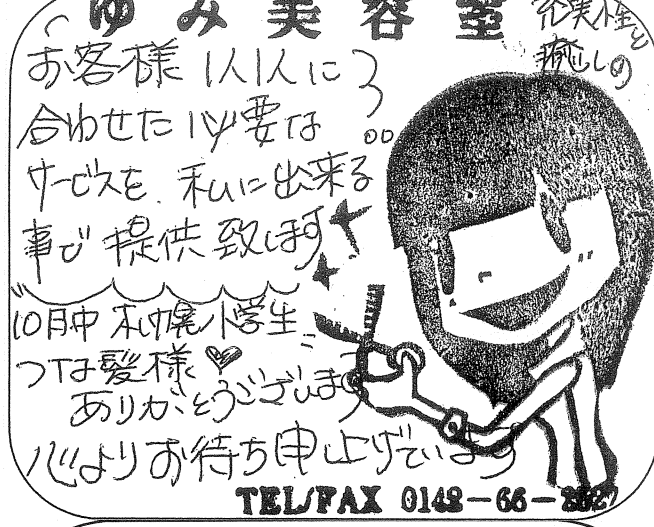 ゆみ美容室
充実性と
癒しの
お客様1人1人に
合わせた必要な
サービスを私に出来る
事で提供致します
10月中札幌小学生
つな髪様♡
ありがとうございます
心よりお待ち申上げています
TEL/FAX 0142-66-